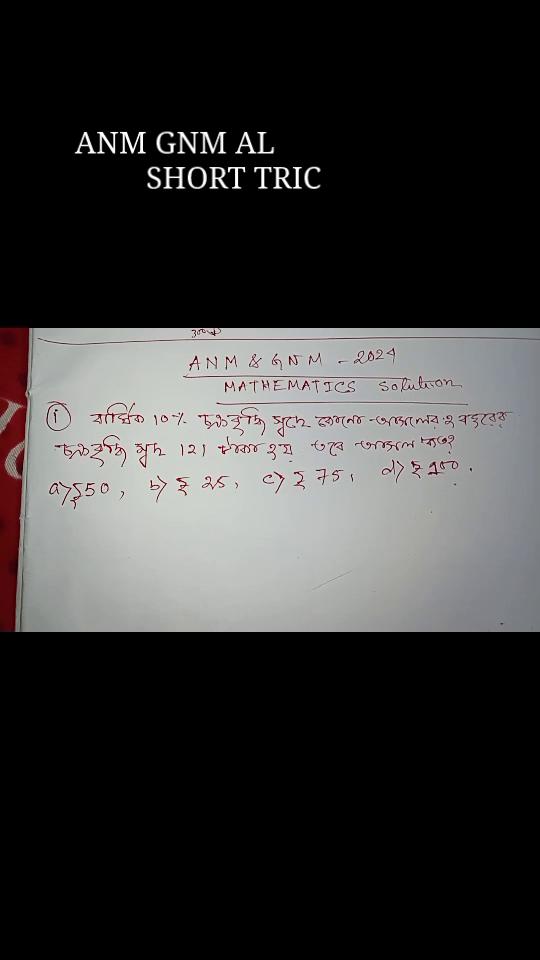 ANM GNM AL
SHORT TRIC
ANM & GNM - 2024
MATHEMATICS Solution
① বার্ষিক 10% চক্রবৃদ্ধি সুদে কোনো আসলের 2 বছরের
চক্রবৃদ্ধি সুদ 121 টাকা হয় তবে আসল কত?
a) ₹50, b) ₹ 25, c) ₹ 75, d) ₹ 100.